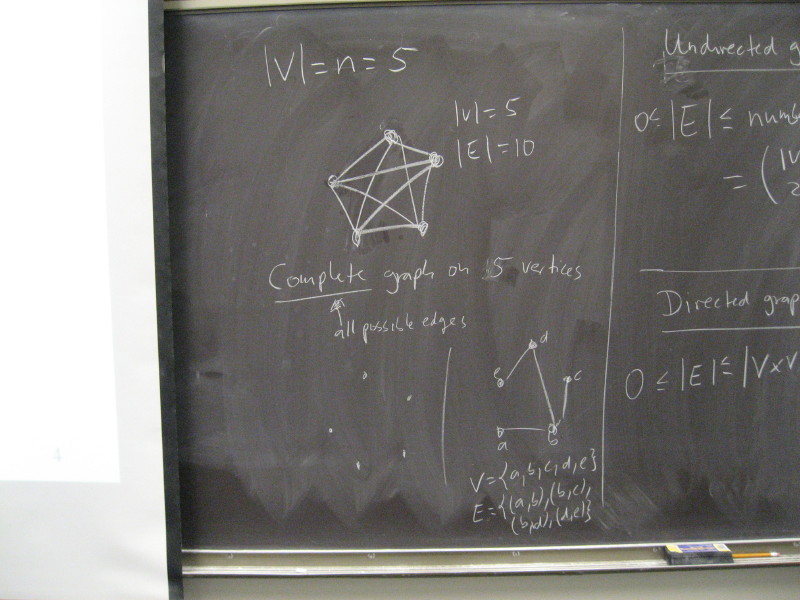 |V|=n=5
|V|=5
|E|=10
Complete graph on 5 vertices
all possible edges
d
e
c
a
b
V={a,b,c,d,e}
E={(a,b),(b,c),
(b,d),(d,e)}
Undirected g
0≤|E|≤ numb
= (|V
2
Directed grap
0≤|E|≤|V×V